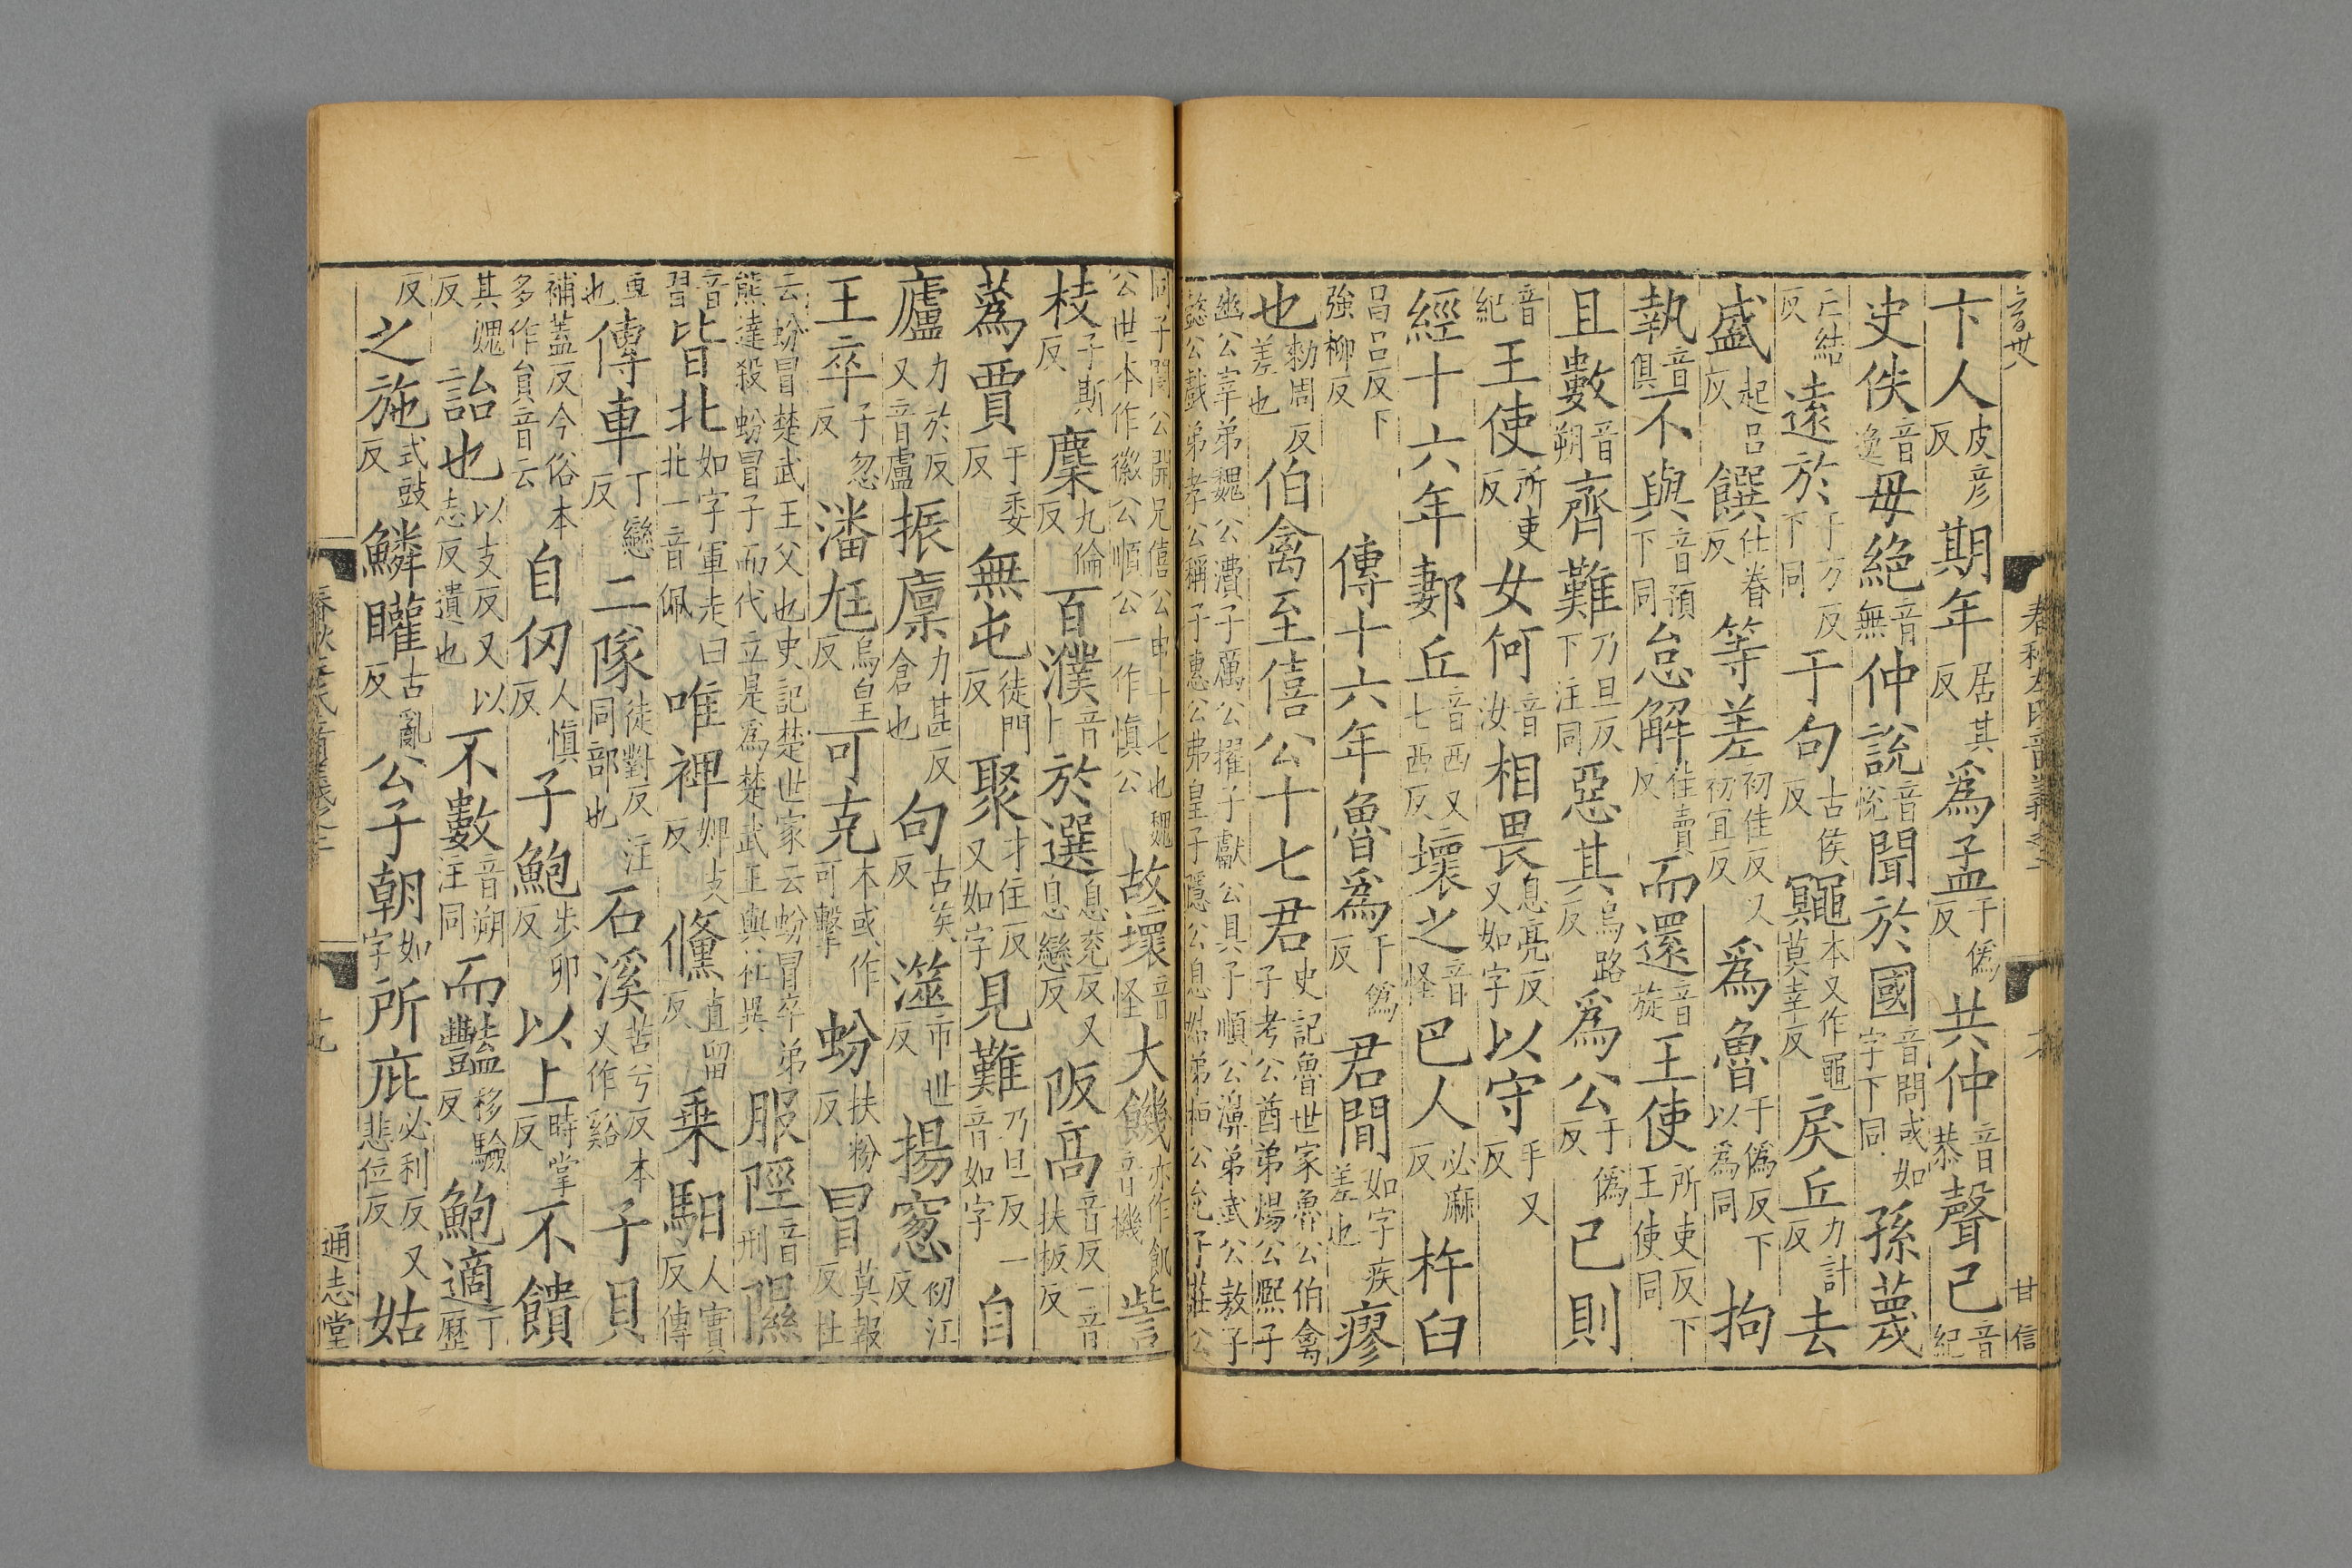 卞人皮彦反期年居其反爲孟于僞反共仲音恭聲己音紀
史佚音逸毋絕音無仲說音悅聞於國音問或如字下同孫蔑
亡結反遠於于万反下同于句古侯反鼆本又作黽莫幸反戾丘力計反去
盛起呂反饌仕眷反等差初佳反又初宜反爲魯于僞反下以爲同拘
執音俱不與音預下同怠解佳賣反而還音旋王使所吏反下王使同
且數音朔齊難乃旦反下注同惡其烏路反爲公于僞反己則
音紀王使所吏反女何音汝相畏息亮反又如字以守手又反
經十六年郪丘音西又七西反壞之音怪巴人必麻反杵臼
昌呂反下強柳反傳十六年魯爲于僞反君間如字疾差也瘳
也勑周反差也伯禽至僖公十七君史記魯世家魯公伯禽子考公酋弟煬公熙子
幽公宰弟魏公㵒子厲公擢子獻公具子順公濞弟武公敖子懿公戲弟孝公稱子惠公弗皇子隱公息姑弟桓公允子莊公
同子閔公開兄僖公申十七也魏公世本作徽公順公一作慎公故壞音怪大饑亦作飢音機訾
枝子斯反麇九倫反百濮音卜於選息兗反又息戀反阪高音反一音扶板反
蒍賈于委反無屯徒門反聚才住反又如字見難乃旦反一音如字自
廬力於反又音盧振廩力甚反倉也句古侯反澨市世反揚窻初江反
王卒子忽反潘尫烏皇反可克本或作可擊蚡扶粉反冒莫報反杜
云蚡冒楚武王父也史記楚世家云蚡冒卒弟熊達殺蚡冒子而代立是爲楚武王與杜異服陘音刑隰
音習皆北如字軍走曰北一音佩唯裨婢支反鯈直留反乗馹人實反傳
車也傳車丁戀反二隊徒對反注同部也石溪苦兮反本又作谿子貝
補蓋反今俗本多作負音云自仞人慎反子鮑步卯反以上時掌反不饋
其媿反詒也以支反又以志反遺也不數音朔注同而豔移驗反鮑適丁歷
反之施式豉反鱗矔古亂反公子朝如字所庇必利反又悲位反姑
通志堂